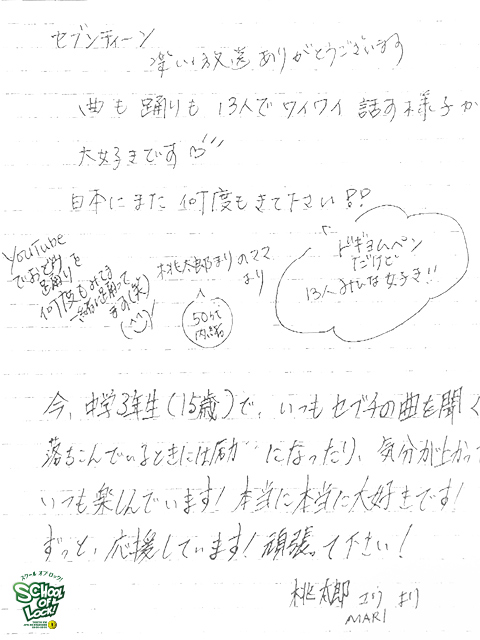 セブンティーン
楽しい放送ありがとうございます
曲も踊りも 13人でワイワイ 話す様子が
大好きです
日本にまた 何度もきて下さい!!
YouTube
でおどり
踊りを
何度もみてる
一緒に踊って
ます(笑)
桃太郎まりのママ
より
50代で
内緒
ドギョムペン
だけど
13人みんな大好き!!
今、中学3年生(15歳)で、いつもセブチの曲を聞く
落ちこんでいるときには励 になったり、気分が上がって
いつも楽しんでいます!本当に本当に大好きです!
ずっと、応援しています!頑張って下さい!
桃太郎 まり より
MARI
スクール オブ ロック!
SCHOOL
OF
LOCK!